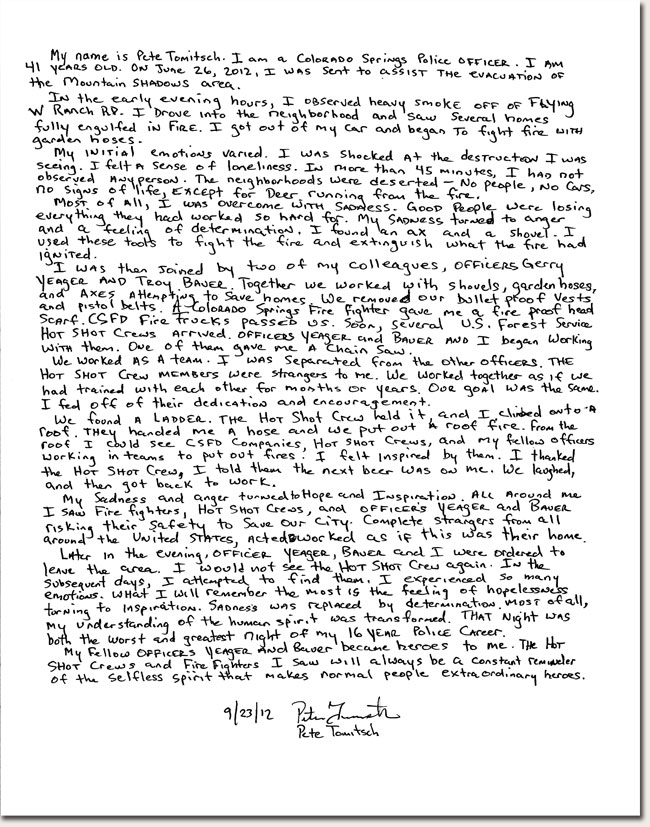 My name is Pete Tomitsch. I am a Colorado Springs Police Officer. I am
41 years old. On June 26, 2012, I was sent to assist the evacuation of
the Mountain Shadows area.
In the early evening hours, I observed heavy smoke off of Flying
W Ranch Rd. I drove into the neighborhood and saw several homes
fully engulfed in fire. I got out of my car and began to fight fire with
garden hoses.
My initial emotions varied. I was shocked at the destruction I was
seeing. I felt a sense of loneliness. In more than 45 minutes, I had not
observed any person. The neighborhoods were deserted - No people, no cars,
no signs of life, except for Deer running from the fire.
Most of all, I was overcome with sadness. Good people were losing
everything they had worked so hard for. My sadness turned to anger
and a feeling of determination. I found an ax and a shovel. I
used these tools to fight the fire and extinguish what the fire had
ignited.
I was then joined by two of my colleagues, Officers Gerry
Yeager and Troy Bauer. Together we worked with shovels, garden hoses,
and axes attempting to save homes. We removed our bullet proof vests
and pistol belts. A Colorado Springs Fire fighter gave me a fire proof head
scarf. CSFD Fire trucks passed us. Soon, several U.S. Forest Service
Hot Shot Crews arrived. Officers Yeager and Bauer and I began working
with them. One of them gave me a chain saw.
We worked as a team. I was separated from the other officers. The
Hot Shot Crew members were strangers to me. We worked together as if we
had trained with each other for months or years. Our goal was the same.
I fed off of their dedication and encouragement.
We found a ladder. The Hot Shot Crew held it, and I climbed onto a
roof. They handed me a hose and we put out a roof fire. From the
roof I could see CSFD Companies, Hot Shot Crews, and my fellow officers
working in teams to put out fires. I felt inspired by them. I thanked
the Hot Shot Crew, I told them the next beer was on me. We laughed,
and then got back to work.
My Sadness and anger turned to Hope and Inspiration. All around me
I saw Fire fighters, Hot Shot Crews, and Officer's Yeager and Bauer
risking their safety to save our city. Complete strangers from all
around the United States, acted worked as if this was their home.
Later in the evening, Officer Yeager, Bauer and I were ordered to
leave the area. I would not see the Hot Shot Crew again. In the
subsequent days, I attempted to find them. I experienced so many
emotions. What I will remember the most is the feeling of hopelessness
turning to inspiration. Sadness was replaced by determination. Most of all,
my understanding of the human spirit was transformed. That night was
both the worst and greatest night of my 16 year Police Career.
My fellow Officers Yeager and Bauer became heroes to me. The Hot
Shot Crews and Fire Fighters I saw will always be a constant reminder
of the selfless spirit that makes normal people extraordinary heroes.
9/23/12
Pete Tomitsch